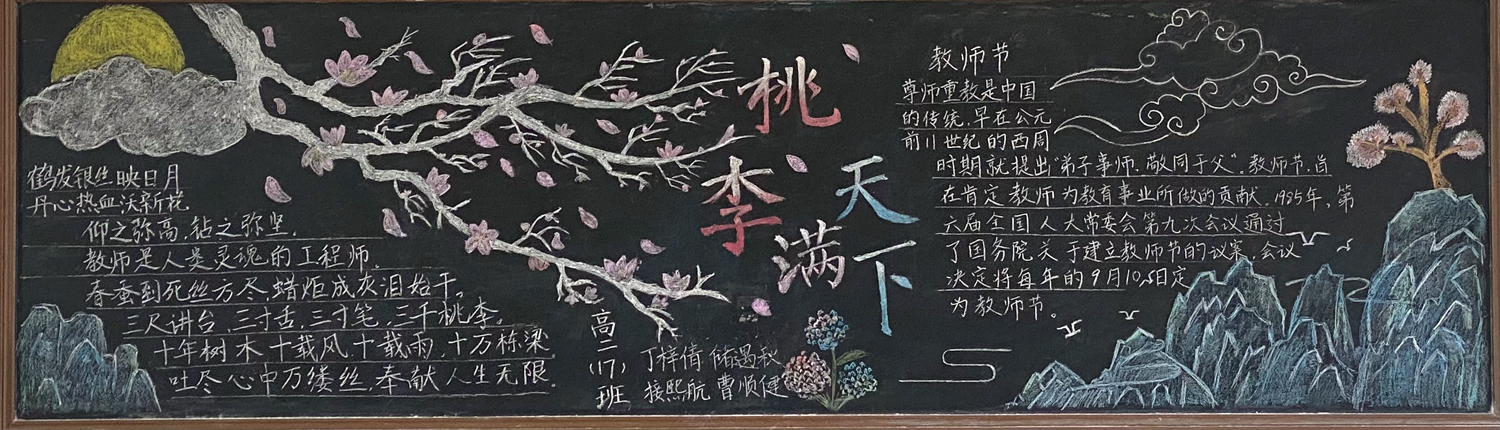 鹤发银丝映日月
丹心热血沃新花
仰之弥高,钻之弥坚.
教师是人类灵魂的工程师.
春蚕到死丝方尽,蜡炬成灰泪始干。
三尺讲台,三寸舌,三寸笔,三千桃李。
十年树木十载风十载雨,十万栋梁.
吐尽心中万缕丝,奉献人生无限.
桃
李
满
天
下
高二(17)班
丁梓倩 储遇秋
接熙航 曹顺健
教师节
尊师重教是中国
的传统,早在公元
前11世纪的西周
时期就提出“弟子事师,敬同于父”。教师节,旨
在肯定教师为教育事业所做的贡献.1985年,第
六届全国人大常委会第九次会议通过
了国务院关于建立教师节的议案,会议
决定将每年的9月10日定
为教师节。